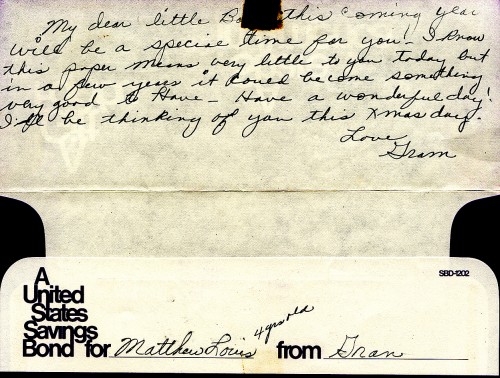 My dear little this coming year
will be a special time for you - I know
this paper means very little to you today but
in a few years it could become something
very good to have - Have a wonderful day!
I'll be thinking of you this Xmas day.
Love
Gram
SBD-1202
A
United
States
Savings
Bond for Matthew Louis 4 yrs old from Gran